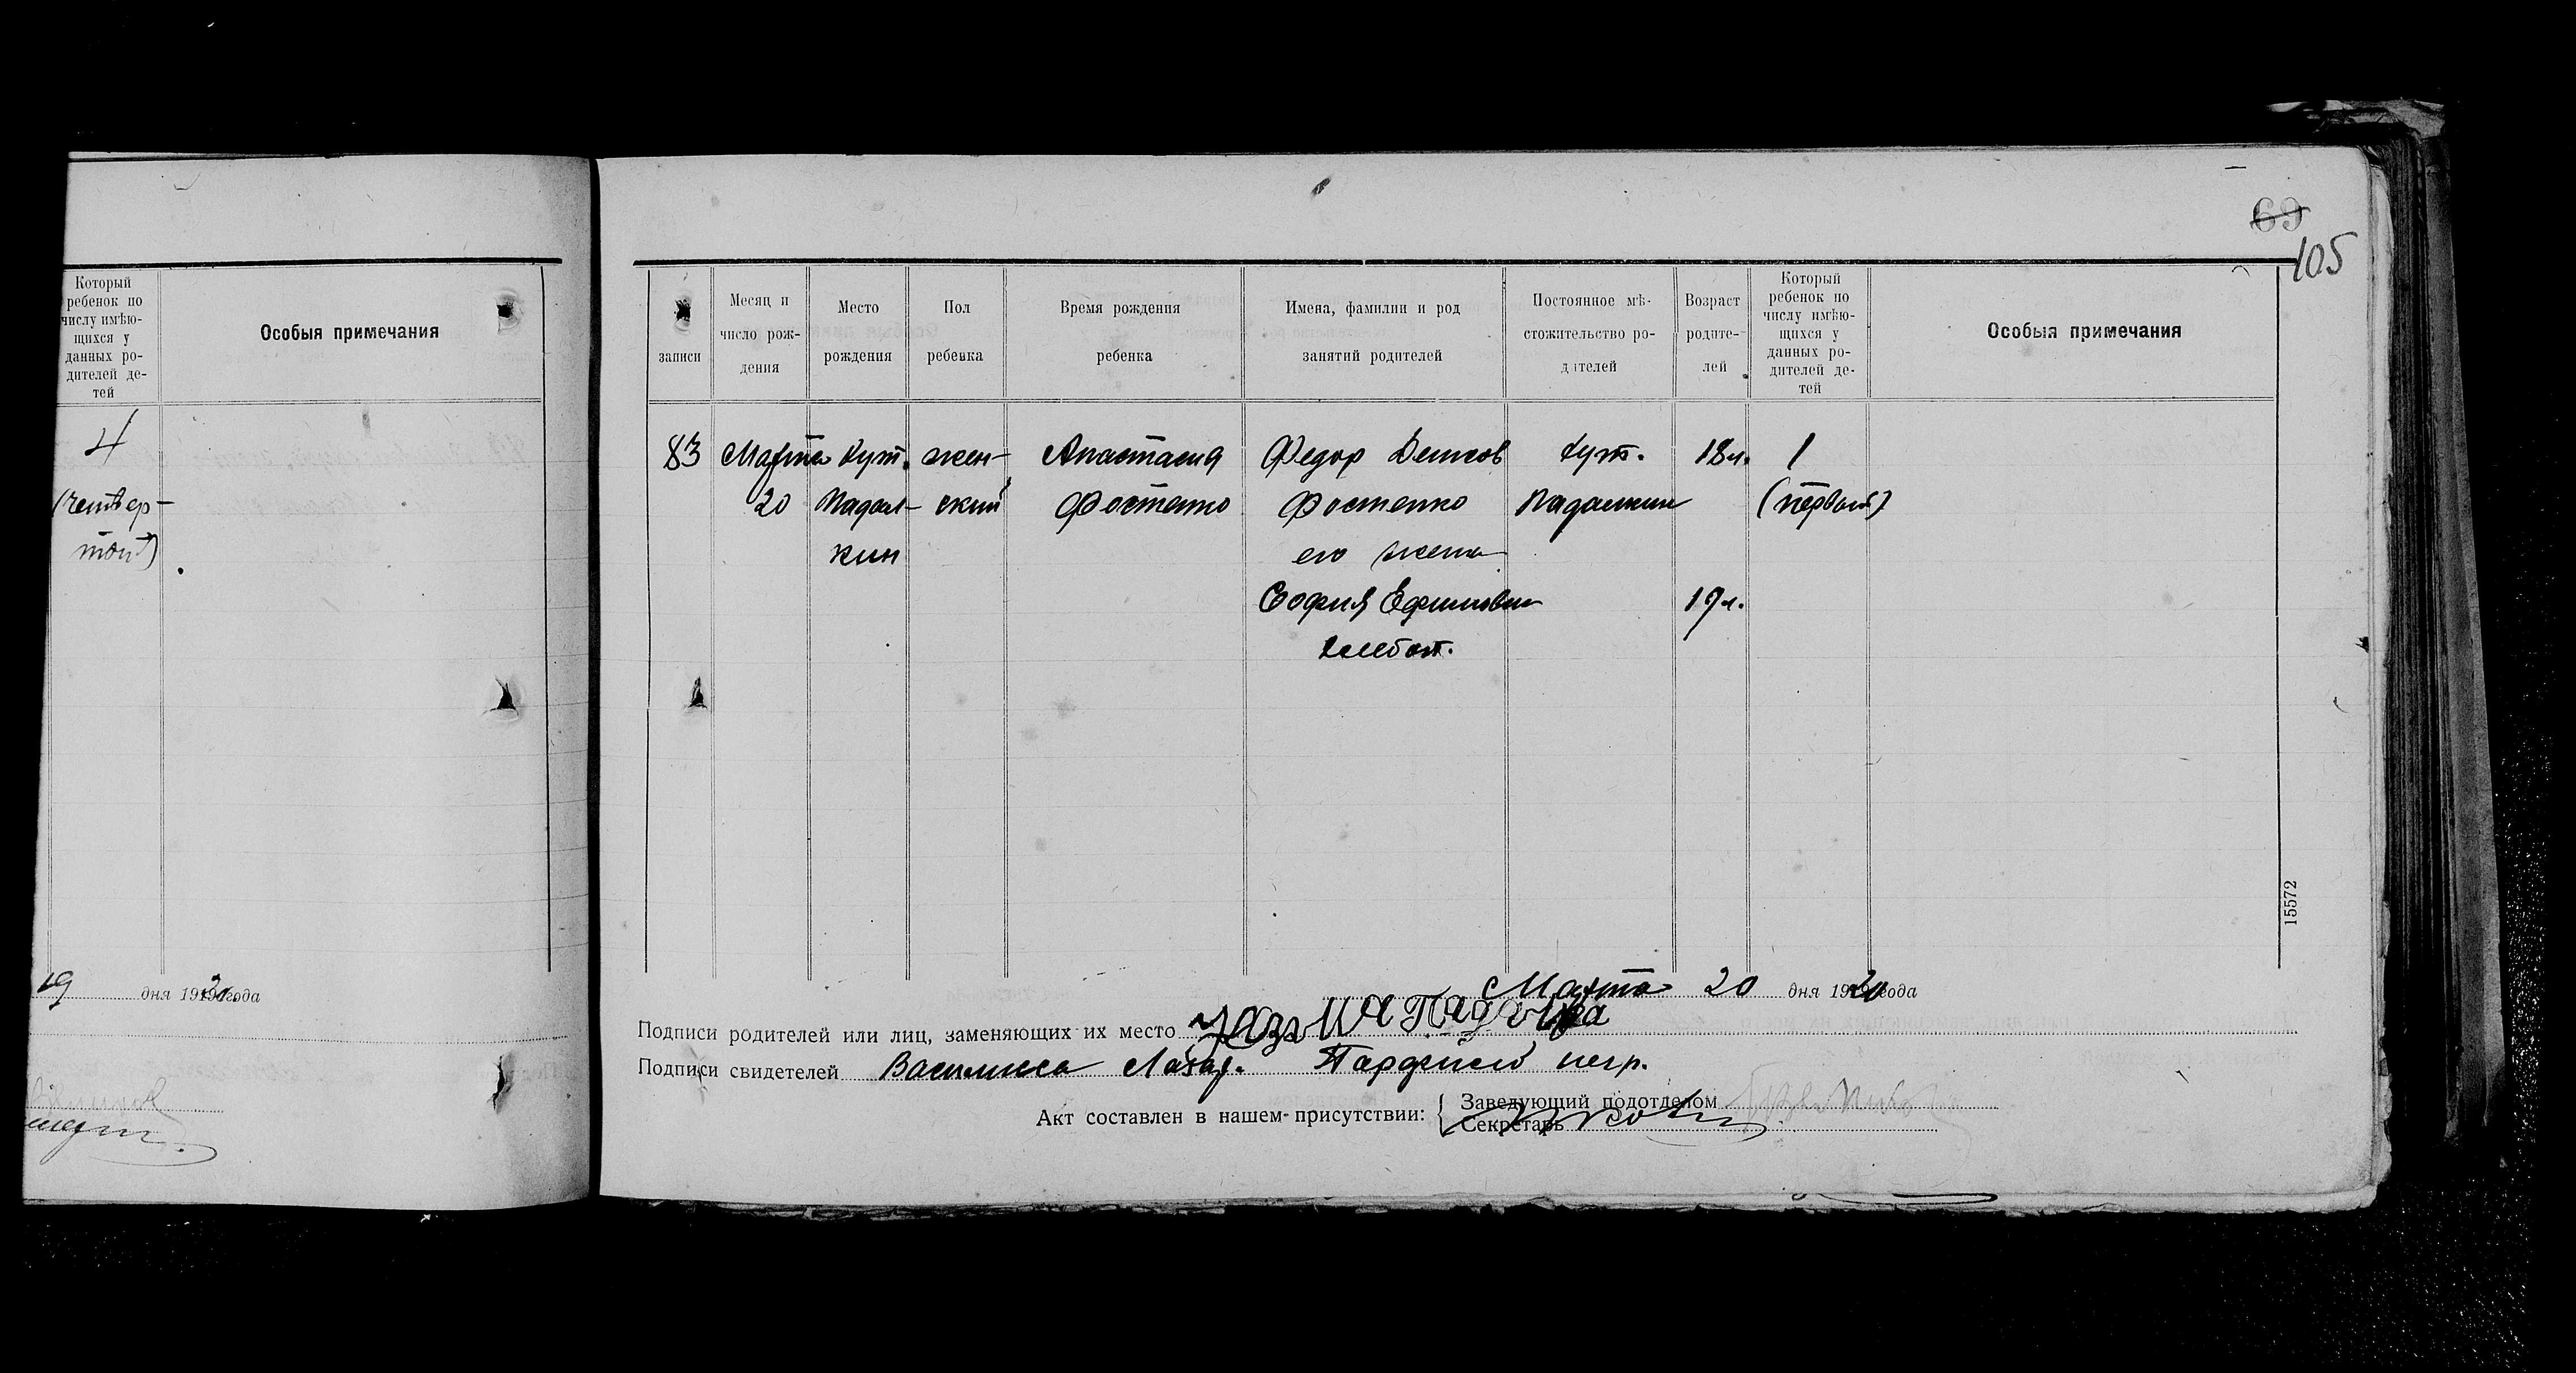 69
105
Который
ребенок по
числу имѣю-
щихся у
данных ро-
дителей де-
тей
Особыя примечания
4
(четвер-
тый)
19 дня 1919 года
записи
Месяц и
число рож-
дения
Место
рождения
Пол
ребенка
Время рождения
ребенка
Имена, фамилии и род
занятий родителей
Постоянное мѣ-
стожительство ро-
дителей
Возраст
родите-
лей
Который
ребенок по
числу имѣю-
щихся у
данных ро-
дителей де-
тей
Особыя примечания
83 Марта Хут. жен- Анастасия Федор Хут. 18 л. 1
20 Падал- ский Фостенко Фостенко Падалкин (первый)
кин его жена
София Ефимовна 19 л.
хлебоп.
15572
Марта 20 дня 1920 года
Подписи родителей или лиц, заменяющих их место
Подписи свидетелей Василиса Лазар.
Акт составлен в нашем присутствии:
Заведующий подотделом
Секретарь